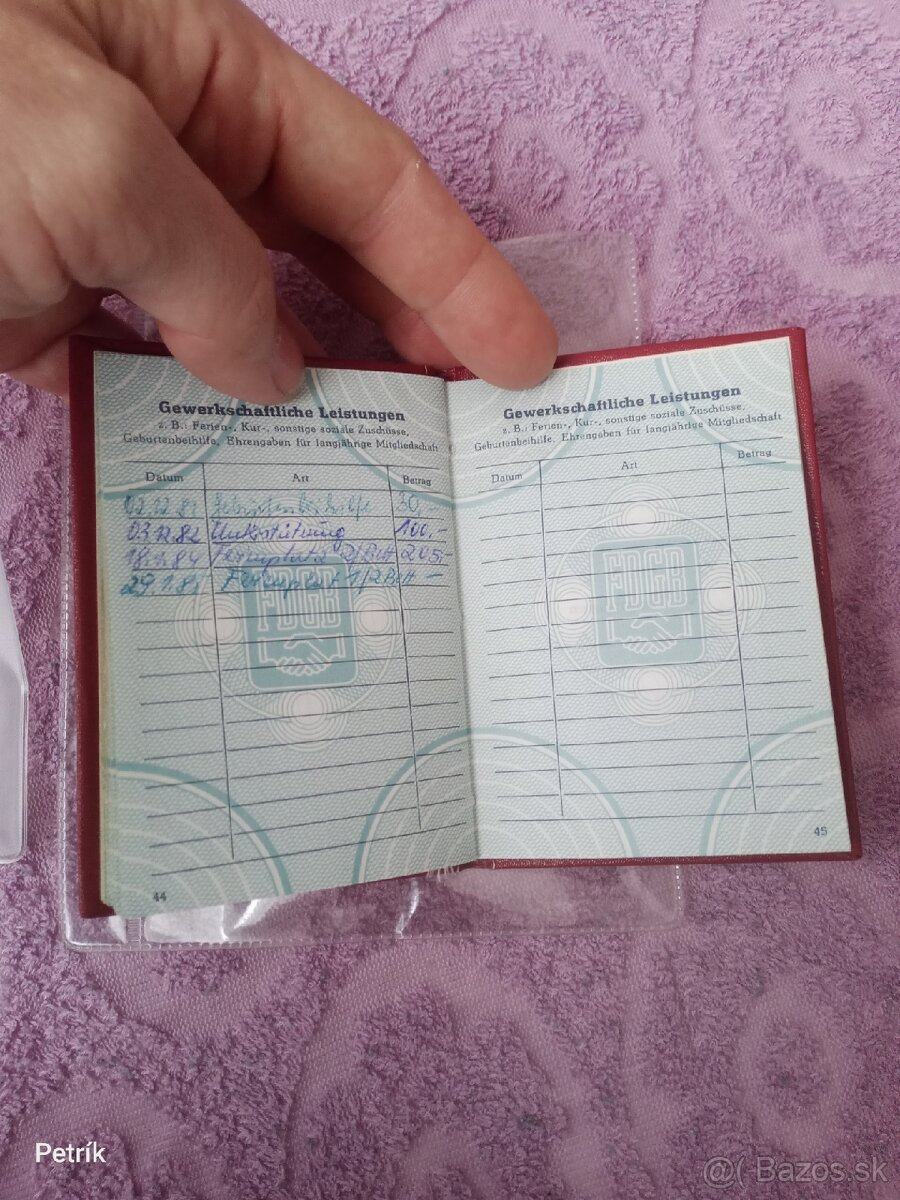 Gewerkschaftliche Leistungen
z. B.: Ferien-, Kur-, sonstige soziale Zuschüsse,
Geburtenbeihilfe, Ehrengaben für langjährige Mitgliedschaft
Datum Art Betrag
Geburtenbeihilfe 30,-
03.12.82 Unterstützung 100,-
Ferienplatz 205,-
29.1.85 Ferienplatz 1/2 Bett -
FDGB
44
Gewerkschaftliche Leistungen
z. B.: Ferien-, Kur-, sonstige soziale Zuschüsse,
Geburtenbeihilfe, Ehrengaben für langjährige Mitgliedschaft
Datum Art Betrag
FDGB
45
Petrík
@( Bazos.sk